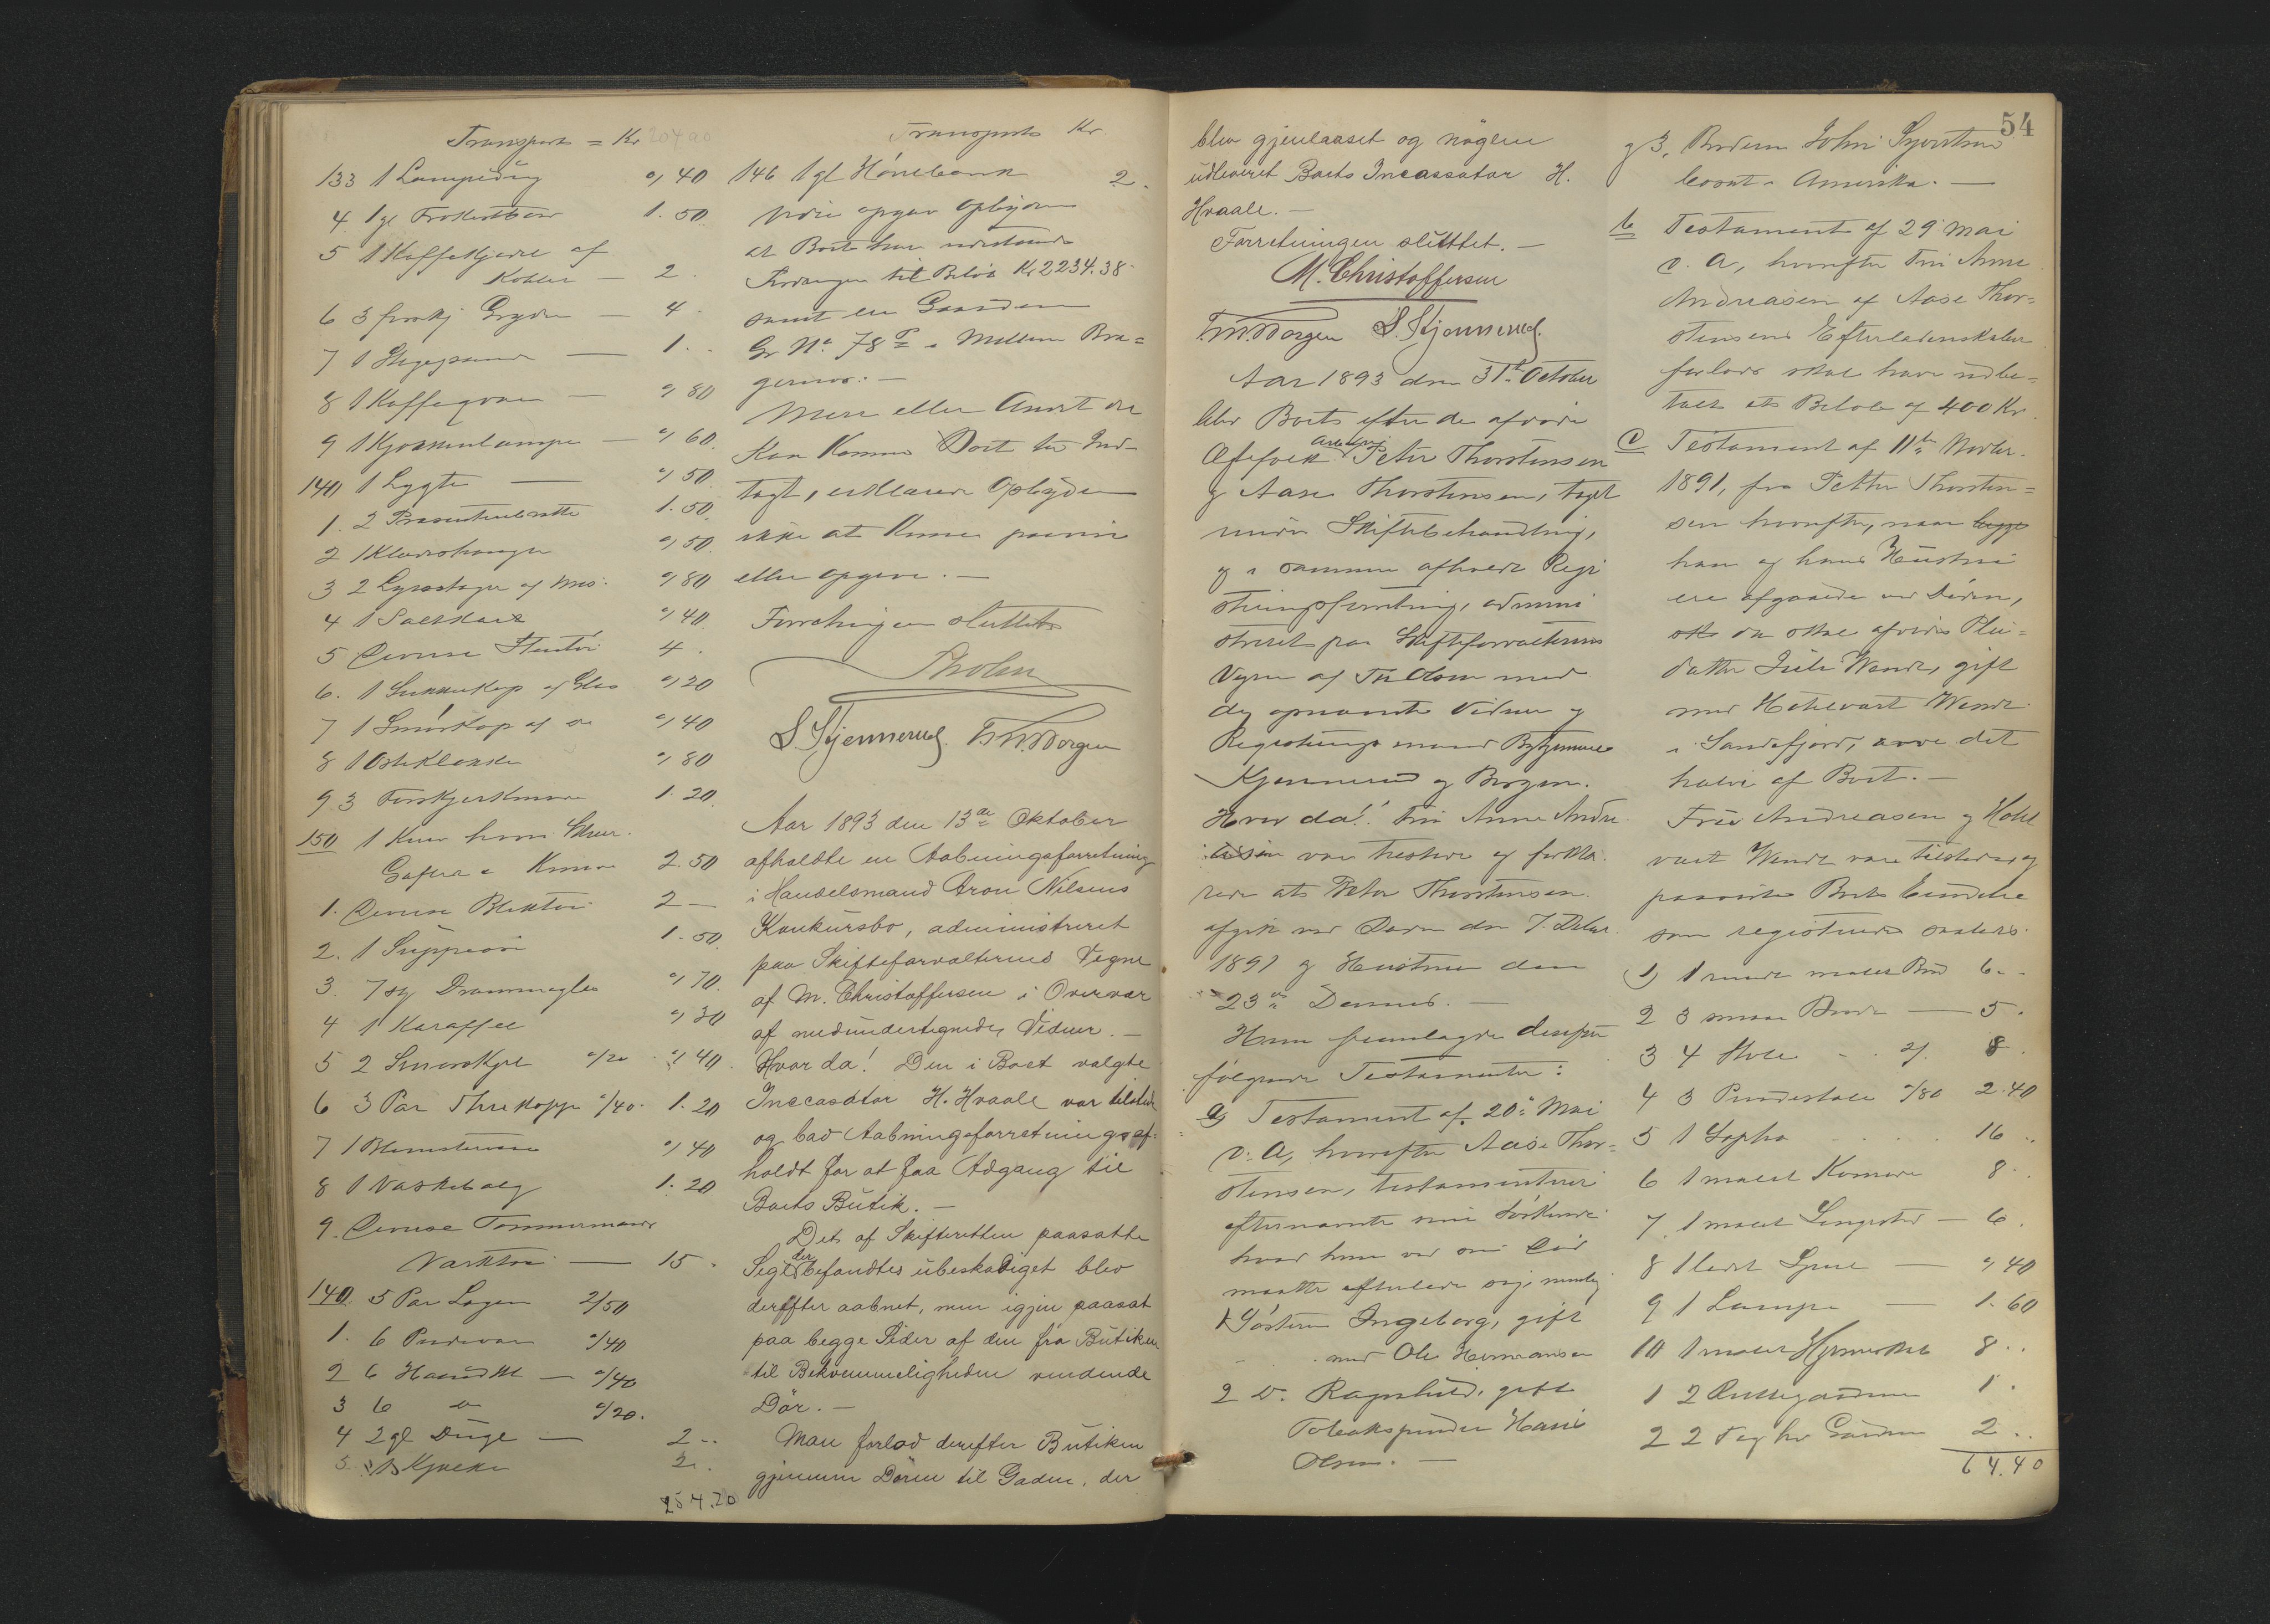 Transport = Kr 204 90
133 1 Lampedug " 40
4 1 gl 1. 50
5 1 Kaffekjedel af
Kobber — 2.
6 3 Gryder — 4.
7 1 Stegepande — 1.
8 1 Kaffeqværn — " 80
9 1 Kjøkkenlampe — " 60.
140 1 Lygte — " 50
1. 2 Præsenteerbrætte 1. 50.
2 1 Klædeshænger " 50.
3 2 Lysestager af Mes. " 80
4 1 Saltkar " 40
5 Diverse Stentøi 4.
6. 1 Sukkerkop af Glas " 20
7 1 Smørkop af do " 40
8 1 Osteklokke " 80
9 3 1. 20.
150 1 Kurv hvori
Gafler & Knive 2. 50
1. Diverse Bliktøi 2 —
2. 1 1. 50
3. 7 stk Drammeglas " 70.
4 1 Karaffel " 30
5 2 "/20 " 40.
6 3 Par Thekopper "/40. 1. 20
7 1 " 40
8 1 Vaskebalg 1. 20
9. Diverse Tømmermands
Værktøi — 15.
140. 5 Par Lagen 2/50
1. 6 Pudevar "/40
2 6 Haandkl — "/40
3 6 do "/20.
4 2 gl Duge — 2 ..
5. 2.
254.20
Transport Kr
146 1 gl Hönebænk 2.
Videre opgav Opbyderen
at Boet har udestaaende
Fordringer til Beløb Kr 2234.38
samt en Gaard
Gr No. 78 i Mellem Bra=
gernæs. —
Mere eller Andet der
kan komme Boet til Ind-
tægt, erklærede Opbyderen
ikke at kunne paavise
eller opgive. —
Forretningen sluttet
Tholm
S. Stjernerud. Th. N. Borgen
Aar 1893 den 13de Oktober
afholdte en Aabningsforretning
i Handelsmand Aron Nilsens
Konkursbo, administreret
paa Skifteforvalterens Vegne
af M. Christoffersen i Overvær
af medundertegnede Vidner. —
Hvor da! Den i Boet valgte
Incassator H. Hvaale var tilstede
og bad Aabningsforretningen af=
holdt for at faa Adgang til
Boets Butik. —
Det af Skifteretten paasatte
Segl der befandtes ubeskadiget blev
derefter aabnet, men igjen paasat
paa begge Sider af den fra Butiken
til Bekvemmeligheden vendende
Dør. —
Man forlod derefter Butiken
gjennem Døren til Gaden, der
54
blev gjenlaaset og nøglen
udleveret Boets Incassator H.
Hvaale. —
Forretningen sluttet. —
M. Christoffersen
Th. N. Borgen S. Stjernerud.
Aar 1893 den 31te October
blev Boet efter de afdøde
Ægtefolk Arbeider Peter Thorstensen
og Aase Thorstensen, taget
under Skiftebehandling,
og i samme afholdt Regi
streringsforretning, admini
streret paa Skifteforvalterens
Vegne af Th Olsen med
de opnævnte Vidner og
Registreringsmænd
og Borgen.
Hvor da! Fru Anne Andre
asen var tilstede og forkla.
rede at Peter Thorstensen
afgik ved Døden den 7. Debr.
1891 og Hustruen den
23de Dennes. —
Hun fremlagde derefter
følgende Testamenter:
a) Testament af 20de Mai
d. A, hvorefter Aase Thor=
stensen, testamenterer
efternævnte sine Søskende
hvad hun ved sin Død
maatte efterlade sig, nemlig
1 Søsteren Ingeborg, gift
med Ole Hermansen
2 do. Ragnhild, gift
Tobakspinder Hans
Olsen. —
g 3, Broderen John
bosat i Amerika. —
b Testament af 29 Mai
d. A, hvorefter Fru Anne
Andreasen af Aase Thor=
stensens Efterladenskaber
forlods skal have udbe=
talt et Beløb af 400 Kr.
c Testament af 11te Novbr.
1891, fra Petter Thorsten=
sen hvorefter, naar begge
han og hans Hustru
ere afgaaede ved Døden,
skal deres Plei=
datter Julie Wendt, gift
med Hotelvært Wendt
i Sandefjord, arve det
halve af Boet. —
Fru Andreasen og Hotel
vært Wendt vare tilstede og
paaviste Boets Eiendele
som registreredes saaledes.
1) 1 rundt malet Bord 6. .
2 3 smaa Borde — 5.
3 4 Stole 2/. 8.
4 3 Pindestole "/80 2. 40
5 1 Sopha 16 ..
6 1 malet Komode 8.
7. 1 malet Sengested — 6.
8 1 " 40
9 1 Lampe — 1. 60
10 1 malet Hjørneskab 8 ..
1 2 Rullegardiner 1.
2 2 Fag hv Gardiner 2 ..
64.40